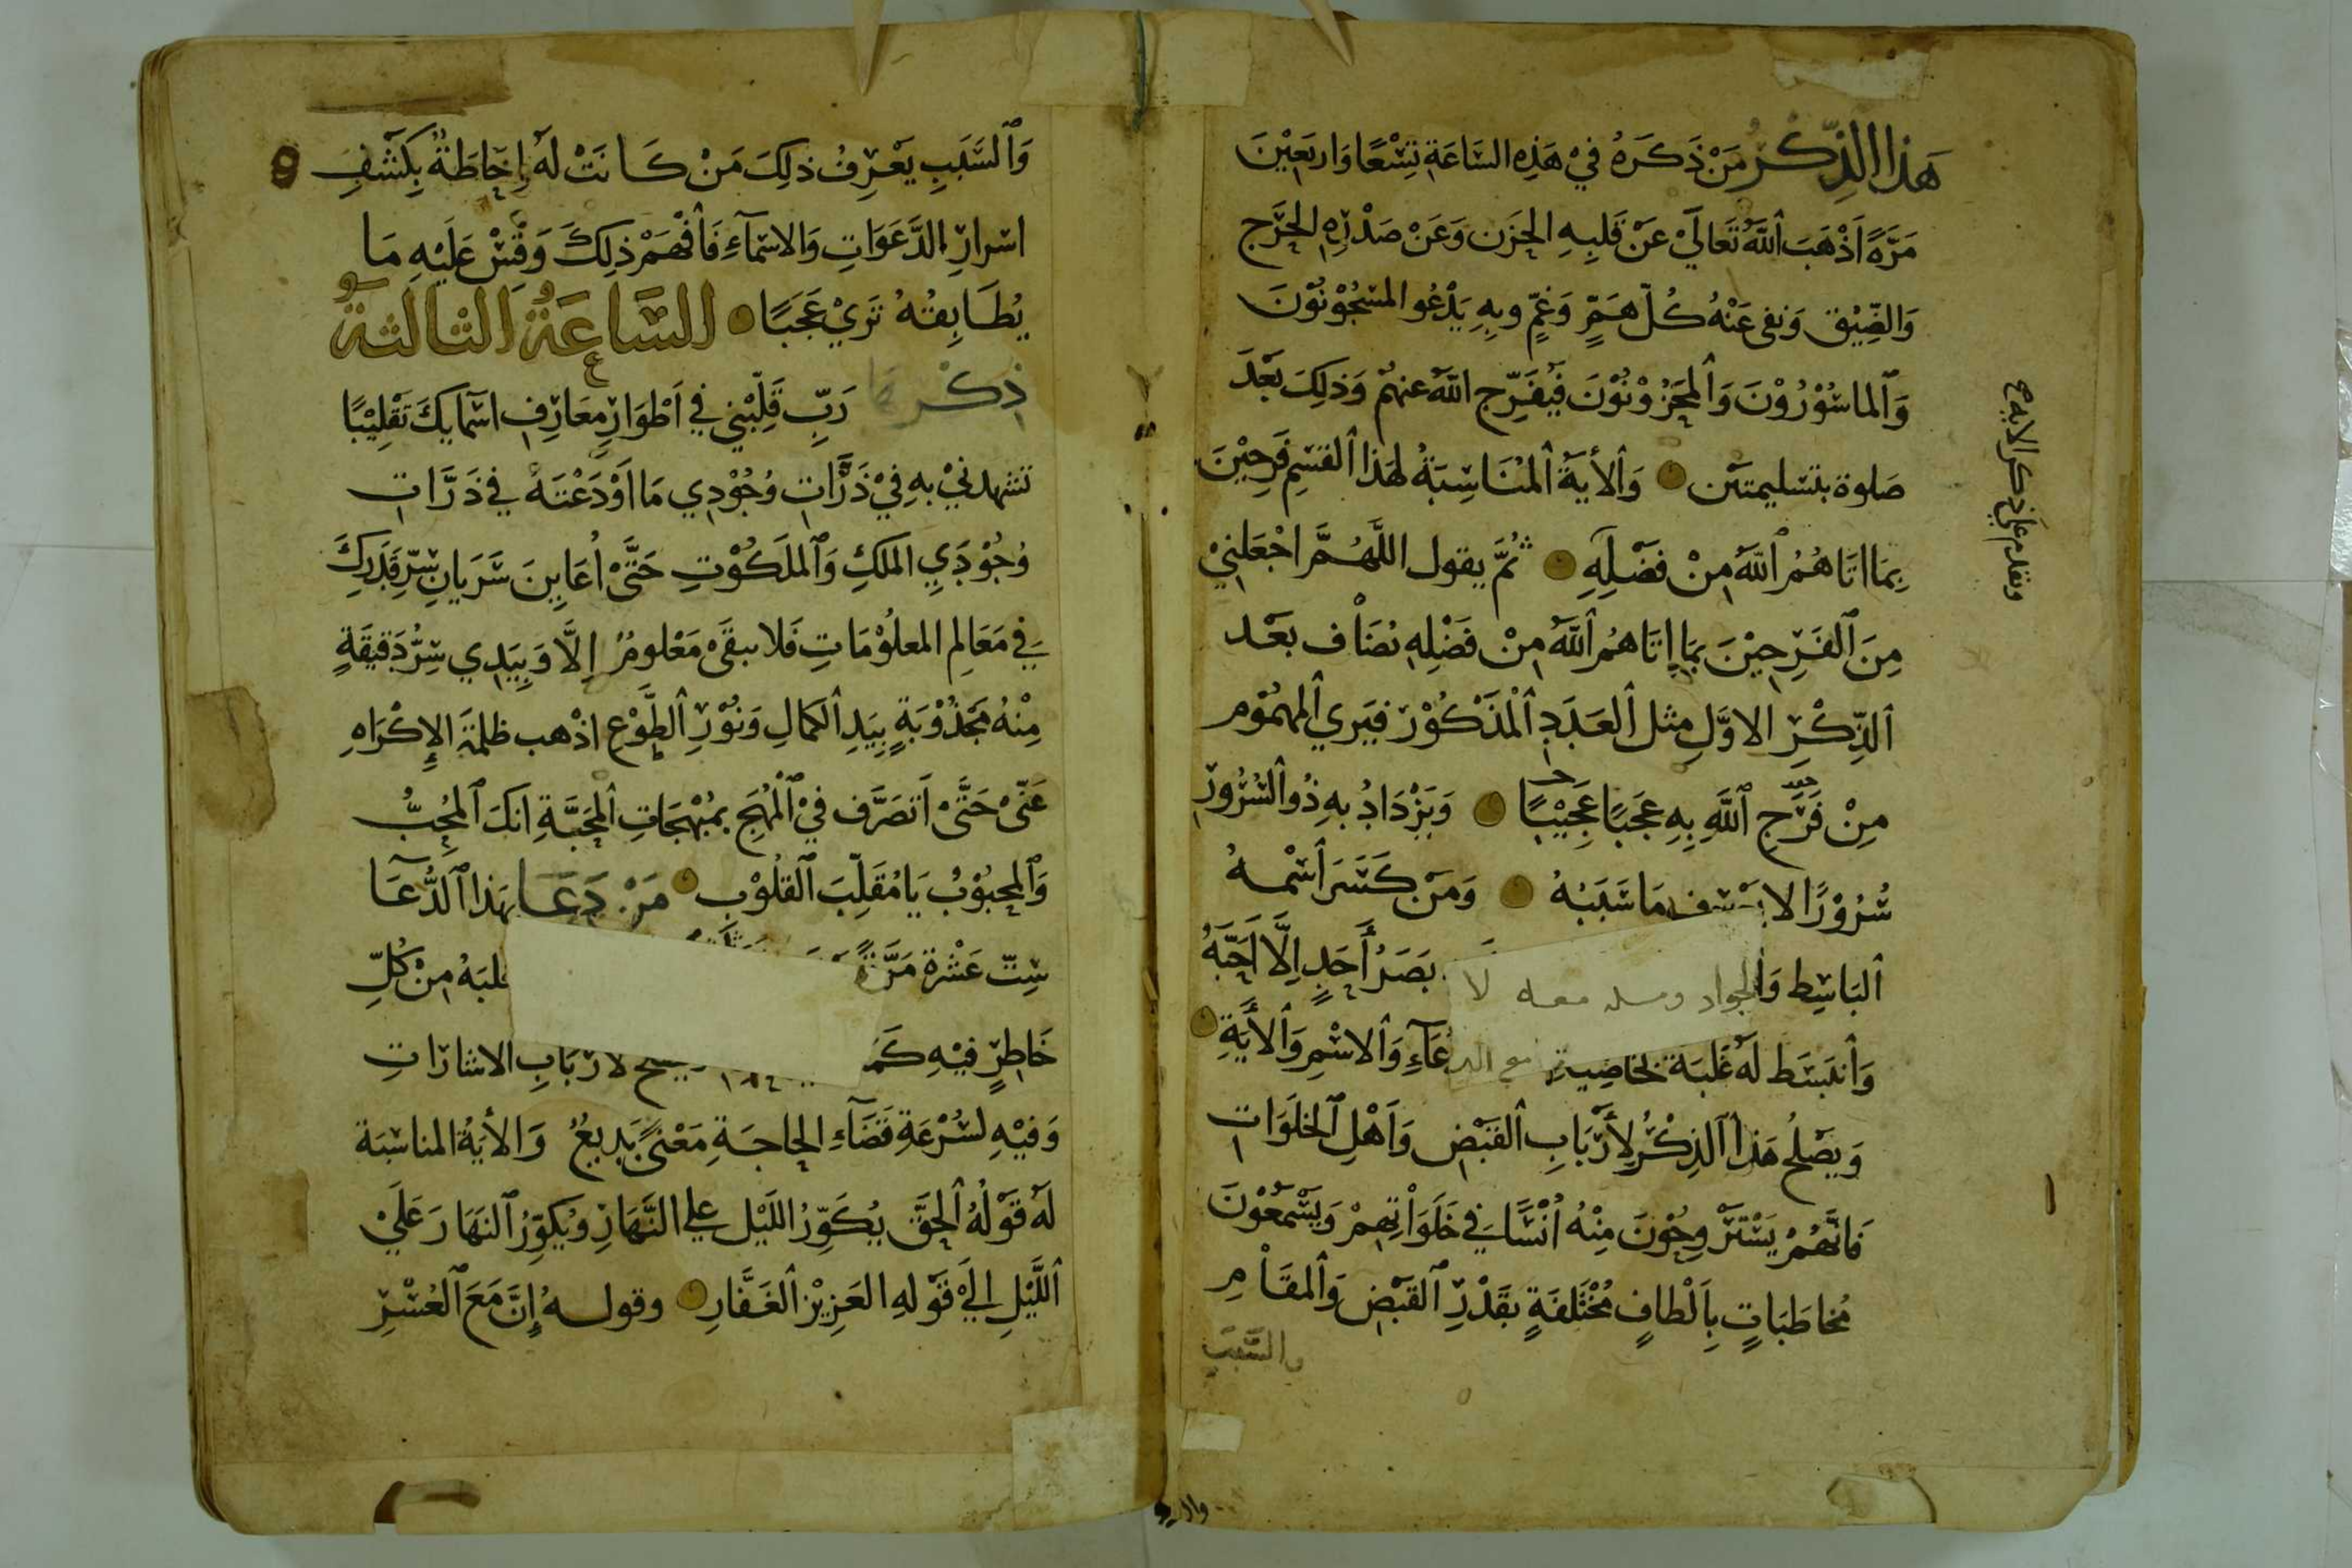 هَذا الذِّكْرُ مَنْ ذَكَرَهُ فِيْ هَذِهِ السَّاعَةِ تِسْعًا وَاربَعِيْنَ
مَرَّةً اَذْهَبَ اللَّهُ تَعَالَيْ عَنْ قَلبِهِ الحَزَن وَعَنْ صَدْرِهِ الحَرَج
وَالضِّيْق وَنفى عَنْهُ كُلّ هَمٍّ وَغمٍّ وبِهِ يَدْعُو المسْجُوْنُوْنَ
وَالماسُوْرُوْنَ وَالمحَزُوْنُوْنَ فَيُفَرِّج اللَّهُ عنهُمْ وَذلِكَ بَعْدَ
صَلوة بتسْليمتَيْن وَالأيَةُ المُنَاسِبَةُ لهَذا القسْمِ فَرِحِيْنَ
بِمَا اتَاهُمُ اللَّهُ مِنْ فَضْلِهِ ثُمَّ يقول اللَّهُمَّ اجْعَلنِيْ
مِنَ الفَرِحِيْنَ بمَا اتَاهُمُ اللَّهُ مِنْ فَضْلِهِ يضَاف بعْد
الذِّكْرِ الاوَّلِ مثل العَدَدِ المذْكُوْر فيَري المهمُوْم
مِنْ فَرَّجِ اللَّهِ بِهِ عَجَبًا عَجِيْبًا وَيَزْدَادُ بهِ ذُو السُّرُوْرِ
سُرُوْرًا لا يعْرف مَا سَبَبُهُ وَمَنْ كَسَّرَ اسْمهُ
البَاسِطِ وَالجواد لا بَصَرُ أَحَدٍ اِلَّا اَحَبَّهُ
وَانبَسَط لَهُ غَلبَة لخاصِيةِ مع الدعَآءِ وَالاسْمِ وَالأيَةِ
وَيصْلُح هَذا الذِكْرُ لِأرْبَابِ القَبْضِ وَاَهْلِ الخلَوَاتِ
فَانَّهُمْ يَسْتَرْوِحُوْنَ مِنْهُ اُنْسًا فِي خَلَوَاتِهِمْ وَيَسْمَعُوْنَ
مُخاطَبَاتٍ بِاَلْطافٍ مُخْتَلفَةٍ بقَدْرِ القَبْضِ وَالمقَامِ
والسَّبَبِ
وَالسَّبَبِ يَعْرِفُ ذلِكَ مَنْ كَانَتْ لَهُ اِحَاطَةٌ بِكشْفِ
اسْرارِ الدَّعَوَاتِ وَالاسْمآءِ فَافْهَمْ ذلِكَ وَقِسْ عَلَيْهِ مَا
يُطَابِقُهُ تَرَيْ عَجَبًا السَّاعَةُ الثالثةُ
ذِكْرهَا رَبِّ قَلِّبْنِي فِي اَطْوَارِ مَعَارِفِ اسْمَايكَ تَقْلِيْبًا
تشهدنيْ بهِ فِيْ ذَرَّاتِ وُجُوْدِي مَا اَوْدَعْتَهُ فِي ذَرَّات
وُجُوْدَيِ الملكِ وَالملَكُوْتِ حَتَّىْ اُعَايِنَ سَرَيَانِ سِرِّ قَدْرِكَ
فِي مَعَالِم المعلُوْمَاتِ فَلا يبقَىْ مَعْلومٌ اِلَّا وَبِيَدِي سِرُّ دَقِيقَةٍ
مِنْهُ مَجْذُوْبَةٍ بِيَدِ الكمَالِ وَنُوْرِ الطَّوْعِ اذْهب ظلمَة الإكْرَاهِ
عَنّىْ حَتَّىْ اَتصَرَّف فِيْ المُهَجِ بمُبْهجَاتِ المحَبَّةِ انكَ المُحِبُّ
وَالمحبُوْبُ يَا مُقَلِّبَ القلُوْبِ مَنْ دَعَا بهَذا الدُّعَآ
سِتّ عَشْرة مَرَّةً قلبَهُ مِنْ كُلِّ
خَاطِرٍ فِيْهِ لارْبَابِ الاشارَاتِ
وَفيْهِ لسُرْعَةِ قَضَآءِ الحاجَةِ مَعْنىً بَدِيعٌ وَالأيَةُ المناسَبَة
لَهُ قَوْلُهُ الحَقّ يُكَوِّرُ اللَيْل على النَّهَارِ وَيُكَوِّرُ النهَارَ عَلَيْ
اللَّيْلِ اليَ قَوْلهِ العَزِيْزِ الغَفَّارِ وقولهُ اِنَّ مَعَ العُسْرِ
وتقدم على ذكر الابدح
9